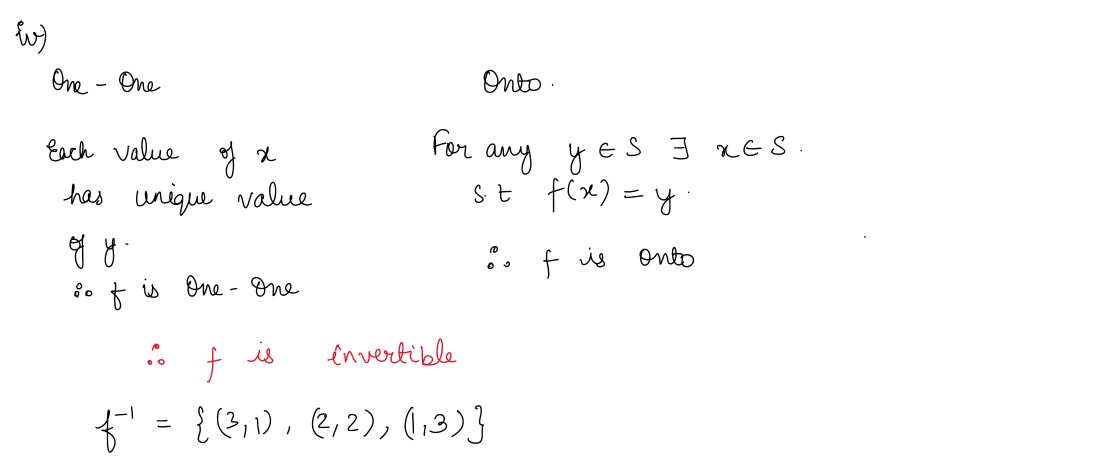 iv)
One - One
Each value of x
has unique value
of y.
∴ f is One - One
Onto.
For any y ∈ S ∃ x ∈ S.
s.t f(x) = y.
∴ f is onto
∴ f is invertible
f⁻¹ = {(3,1), (2,2), (1,3)}